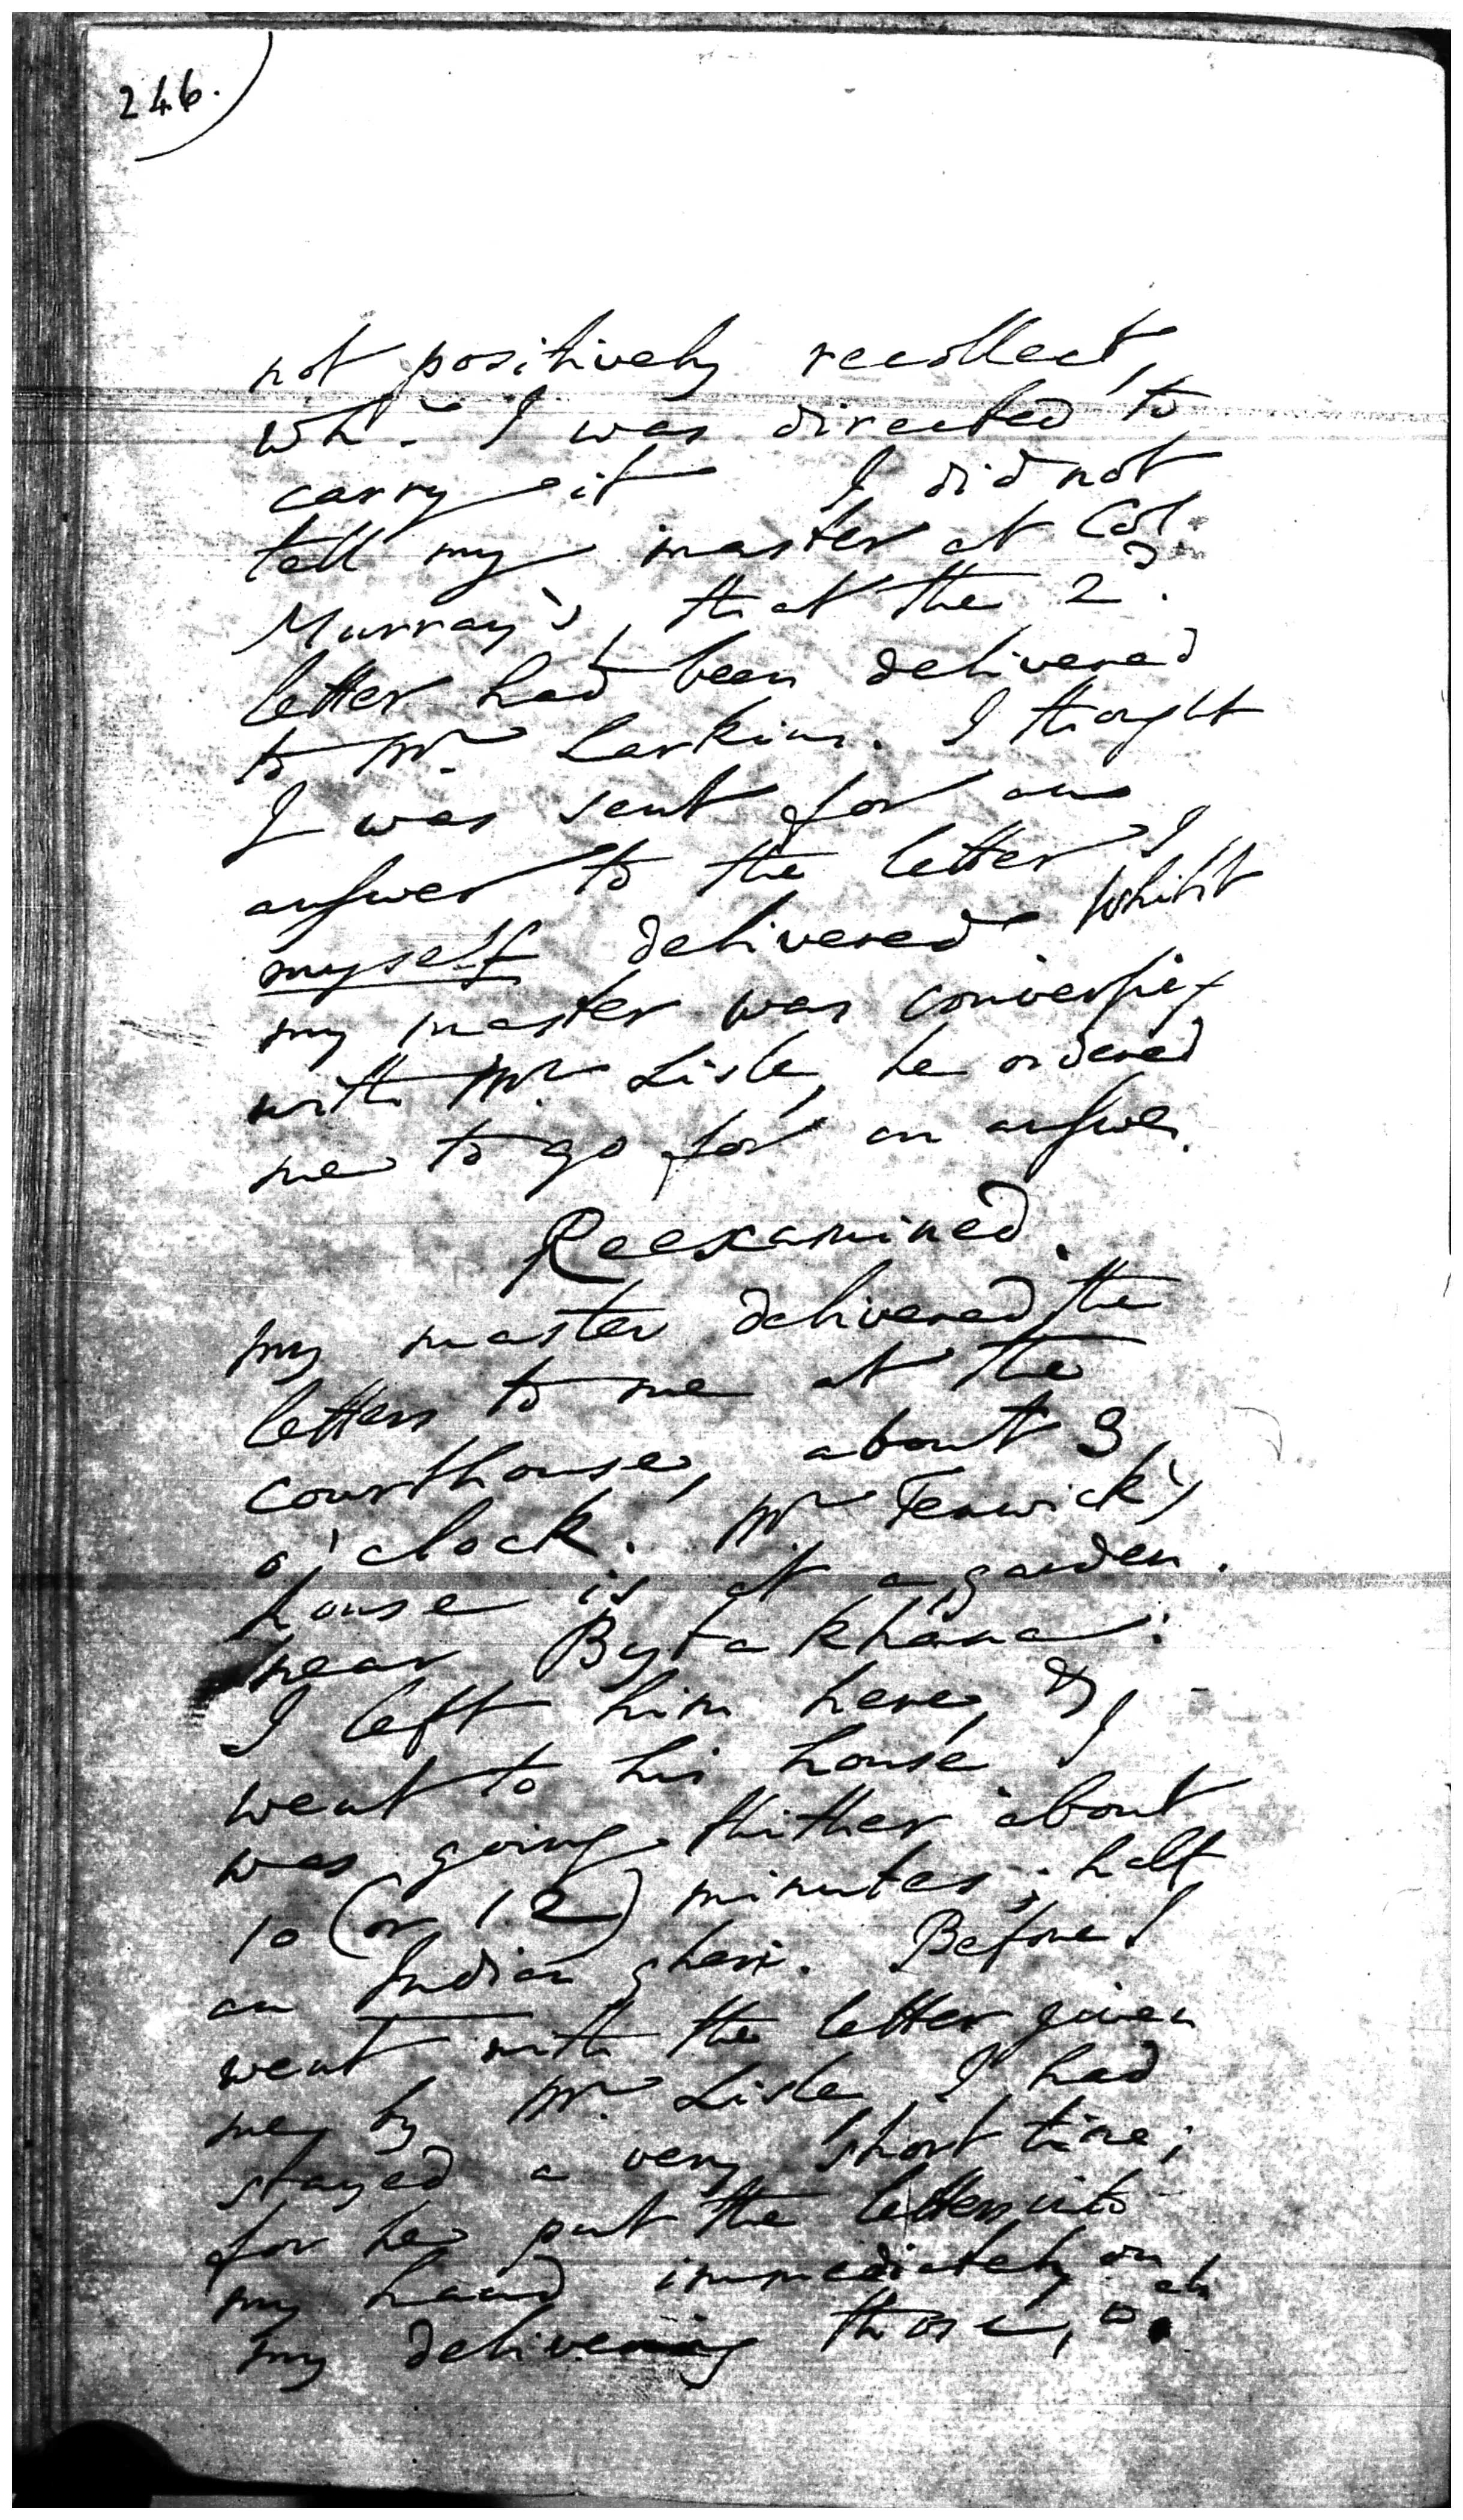 246.
not positively recollect,
whr. I was directed to
carry it I did not
tell my master at Col.
Murray's, that the 2d.
letter had been delivered
to Mr. Larkins. I thought
I was sent for an
answer to the letter I
myself delivered Whilst
my master was conversing
with Mr. Lisle, he ordered
me to go for an answer.
Reexamined.
my master delivered the
letters to me at the
courthouse, about 3
o'clock. Mr. Fenwick's
house is at a garden
near Bytakhana:
I left him here, &
went to his house I
was going thither about
10 (or 12) minutes; half
an Indian gheri. Before I
went with the letter given
me by Mr. Lisle, I had
stayed a very short time;
for he put the letter into
my hand immediately on
my delivering those,